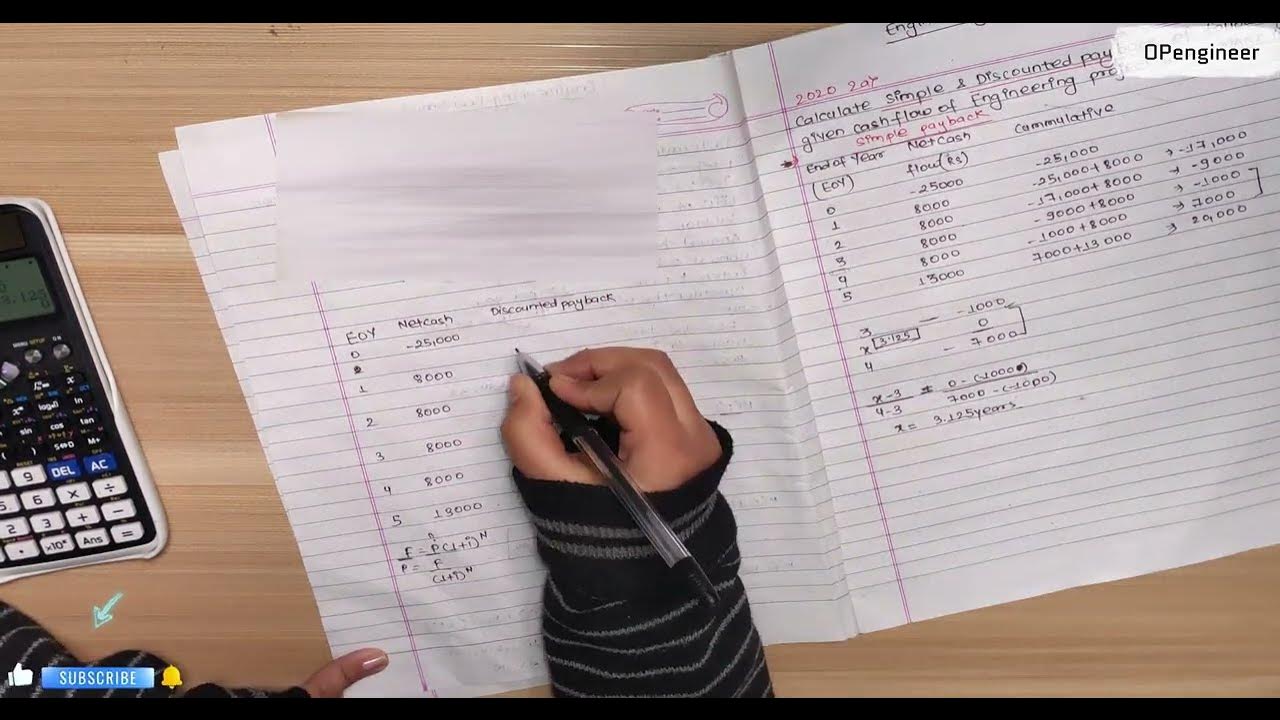 OPengineer
2020 2ar
Calculate simple & Discounted pay
given cashflow of Engineering proj
simple payback
End of Year Netcash Cammulative
(EOY) flow(Rs)
0 -25000 -25,000
1 8000 -25,000+8000 → -17,000
2 8000 -17,000+8000 → -9000
3 8000 -9000+8000 → -1000
4 8000 -1000+8000 → 7000
5 13000 7000+13000 → 20,000
3 — -1000
x [3.125] 0
4 - 7000
x-3 = 0-(-1000)
4-3 7000-(-1000)
x = 3.125years
EOY Netcash Discounted payback
0 -25,000
1 8000
2 8000
3 8000
4 8000
5 13000
F = P(1+i)^N
P = F
(1+i)^N
MENU SETUP ON
log ln
sin cos tan
S⇔D M+
9 DEL AC
6 × ÷
2 3 + -
. ×10ˣ Ans =
SUBSCRIBE